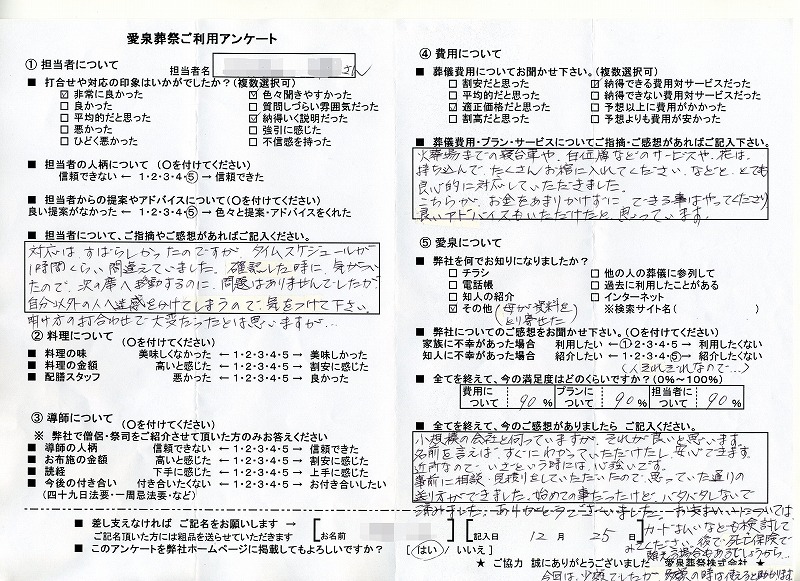 愛泉葬祭ご利用アンケート
① 担当者について
担当者名 さん
■ 打合せや対応の印象はいかがでしたか?(複数選択可)
☑ 非常に良かった ☑ 色々聞きやすかった
□ 良かった □ 質問しづらい雰囲気だった
□ 平均的だと思った ☑ 納得いく説明だった
□ 悪かった □ 強引に感じた
□ ひどく悪かった □ 不信感を持った
■ 担当者の人柄について (○を付けてください)
信頼できない ← 1・2・3・4・⑤ → 信頼できた
■ 担当者からの提案やアドバイスについて(○を付けてください)
良い提案がなかった ← 1・2・3・4・⑤ → 色々と提案・アドバイスをくれた
■ 担当者について、ご指摘やご感想があればご記入ください。
対応は、すばらしかったのですが、タイムスケジュールが
1時間くらい間違えていました。確認した時に、気がつい
たので、次の席へ移動するのに、問題はありませんでしたが、
自分以外の人へ迷惑をかけてしまうので、気をつけて下さい。
明け方の打合わせで大変だったとは思いますが…
② 料理について (○を付けてください)
■ 料理の味 美味しくなかった ← 1・2・3・4・5 → 美味しかった
■ 料理の金額 高いと感じた ← 1・2・3・4・5 → 割安に感じた
■ 配膳スタッフ 悪かった ← 1・2・3・4・5 → 良かった
③ 導師について (○を付けてください)
※ 弊社で僧侶・祭司をご紹介させて頂いた方のみお答えください
■ 導師の人柄 信頼できない ← 1・2・3・4・5 → 信頼できた
■ お布施の金額 高いと感じた ← 1・2・3・4・5 → 割安に感じた
■ 読経 下手に感じた ← 1・2・3・4・5 → 上手に感じた
■ 今後の付き合い 付き合いたくない ← 1・2・3・4・5 → お付き合いしたい
(四十九日法要・一周忌法要・など)
④ 費用について
■ 葬儀費用についてお聞かせ下さい。(複数選択可)
□ 割安だと思った ☑ 納得できる費用対サービスだった
□ 平均的だと思った □ 納得できない費用対サービスだった
☑ 適正価格だと思った □ 予想以上に費用がかかった
□ 割高だと思った □ 予想よりも費用が安かった
■ 葬儀費用・プラン・サービスについてご指摘・ご感想があればご記入下さい。
火葬場までの寝台車や、自位牌などのサービスや、花は、
持ち込んで、たくさんお棺に入れてください、などと、とても
良心的に対応していただきました。
こちらが、お金をあまりかけずに できる事はやってくださり
良いアドバイスもいただけたと 思っています。
⑤ 愛泉について
■ 弊社を何でお知りになりましたか?
□ チラシ □ 他の人の葬儀に参列して
□ 電話帳 □ 過去に利用したことがある
□ 知人の紹介 □ インターネット
☑ その他 (母が資料をとり寄せた) ※検索サイト名( )
■ 弊社についてのご感想をお聞かせ下さい。(○を付けてください)
家族に不幸があった場合 利用したい ←①2・3・4・5→ 利用したくない
知人に不幸があった場合 紹介したい ←1・2・3・4⑤→ 紹介したくない
(人それぞれなので…)
■ 全てを終えて、今の満足度はどのくらいですか?(0%～100%)
費用について 90 % プランについて 90 % 担当者について 90 %
■ 全てを終えて、今のご感想がありましたら ご記入ください。
小規模の会社と伺っていますが、それが良いと思います。
名前を言えば、すぐにわかっていただけたし、安心できます。
近所なので、いざという時には、心強いです。
事前に相談、見積りをしていただいたので、思っていた通りの
送り方ができました。始めての事だったけど、バタバタしないで
済みました。ありがとうございました。お支払いについては、
カードばらいなども検討して
みてください。後で死亡保険で
賄える場合もあるでしょうから…
今回は、少額でしたが、多額の時は、使えると助かります
■ 差し支えなければ ご記名をお願いします →
ご記名頂いた方には粗品を送らせていただきます
お名前
記入日 12 月 25 日
■ このアンケートを弊社ホームページに掲載してもよろしいですか?
[ はい / いいえ ]
★ ご協力 誠にありがとうございました 愛泉葬祭株式会社 ★